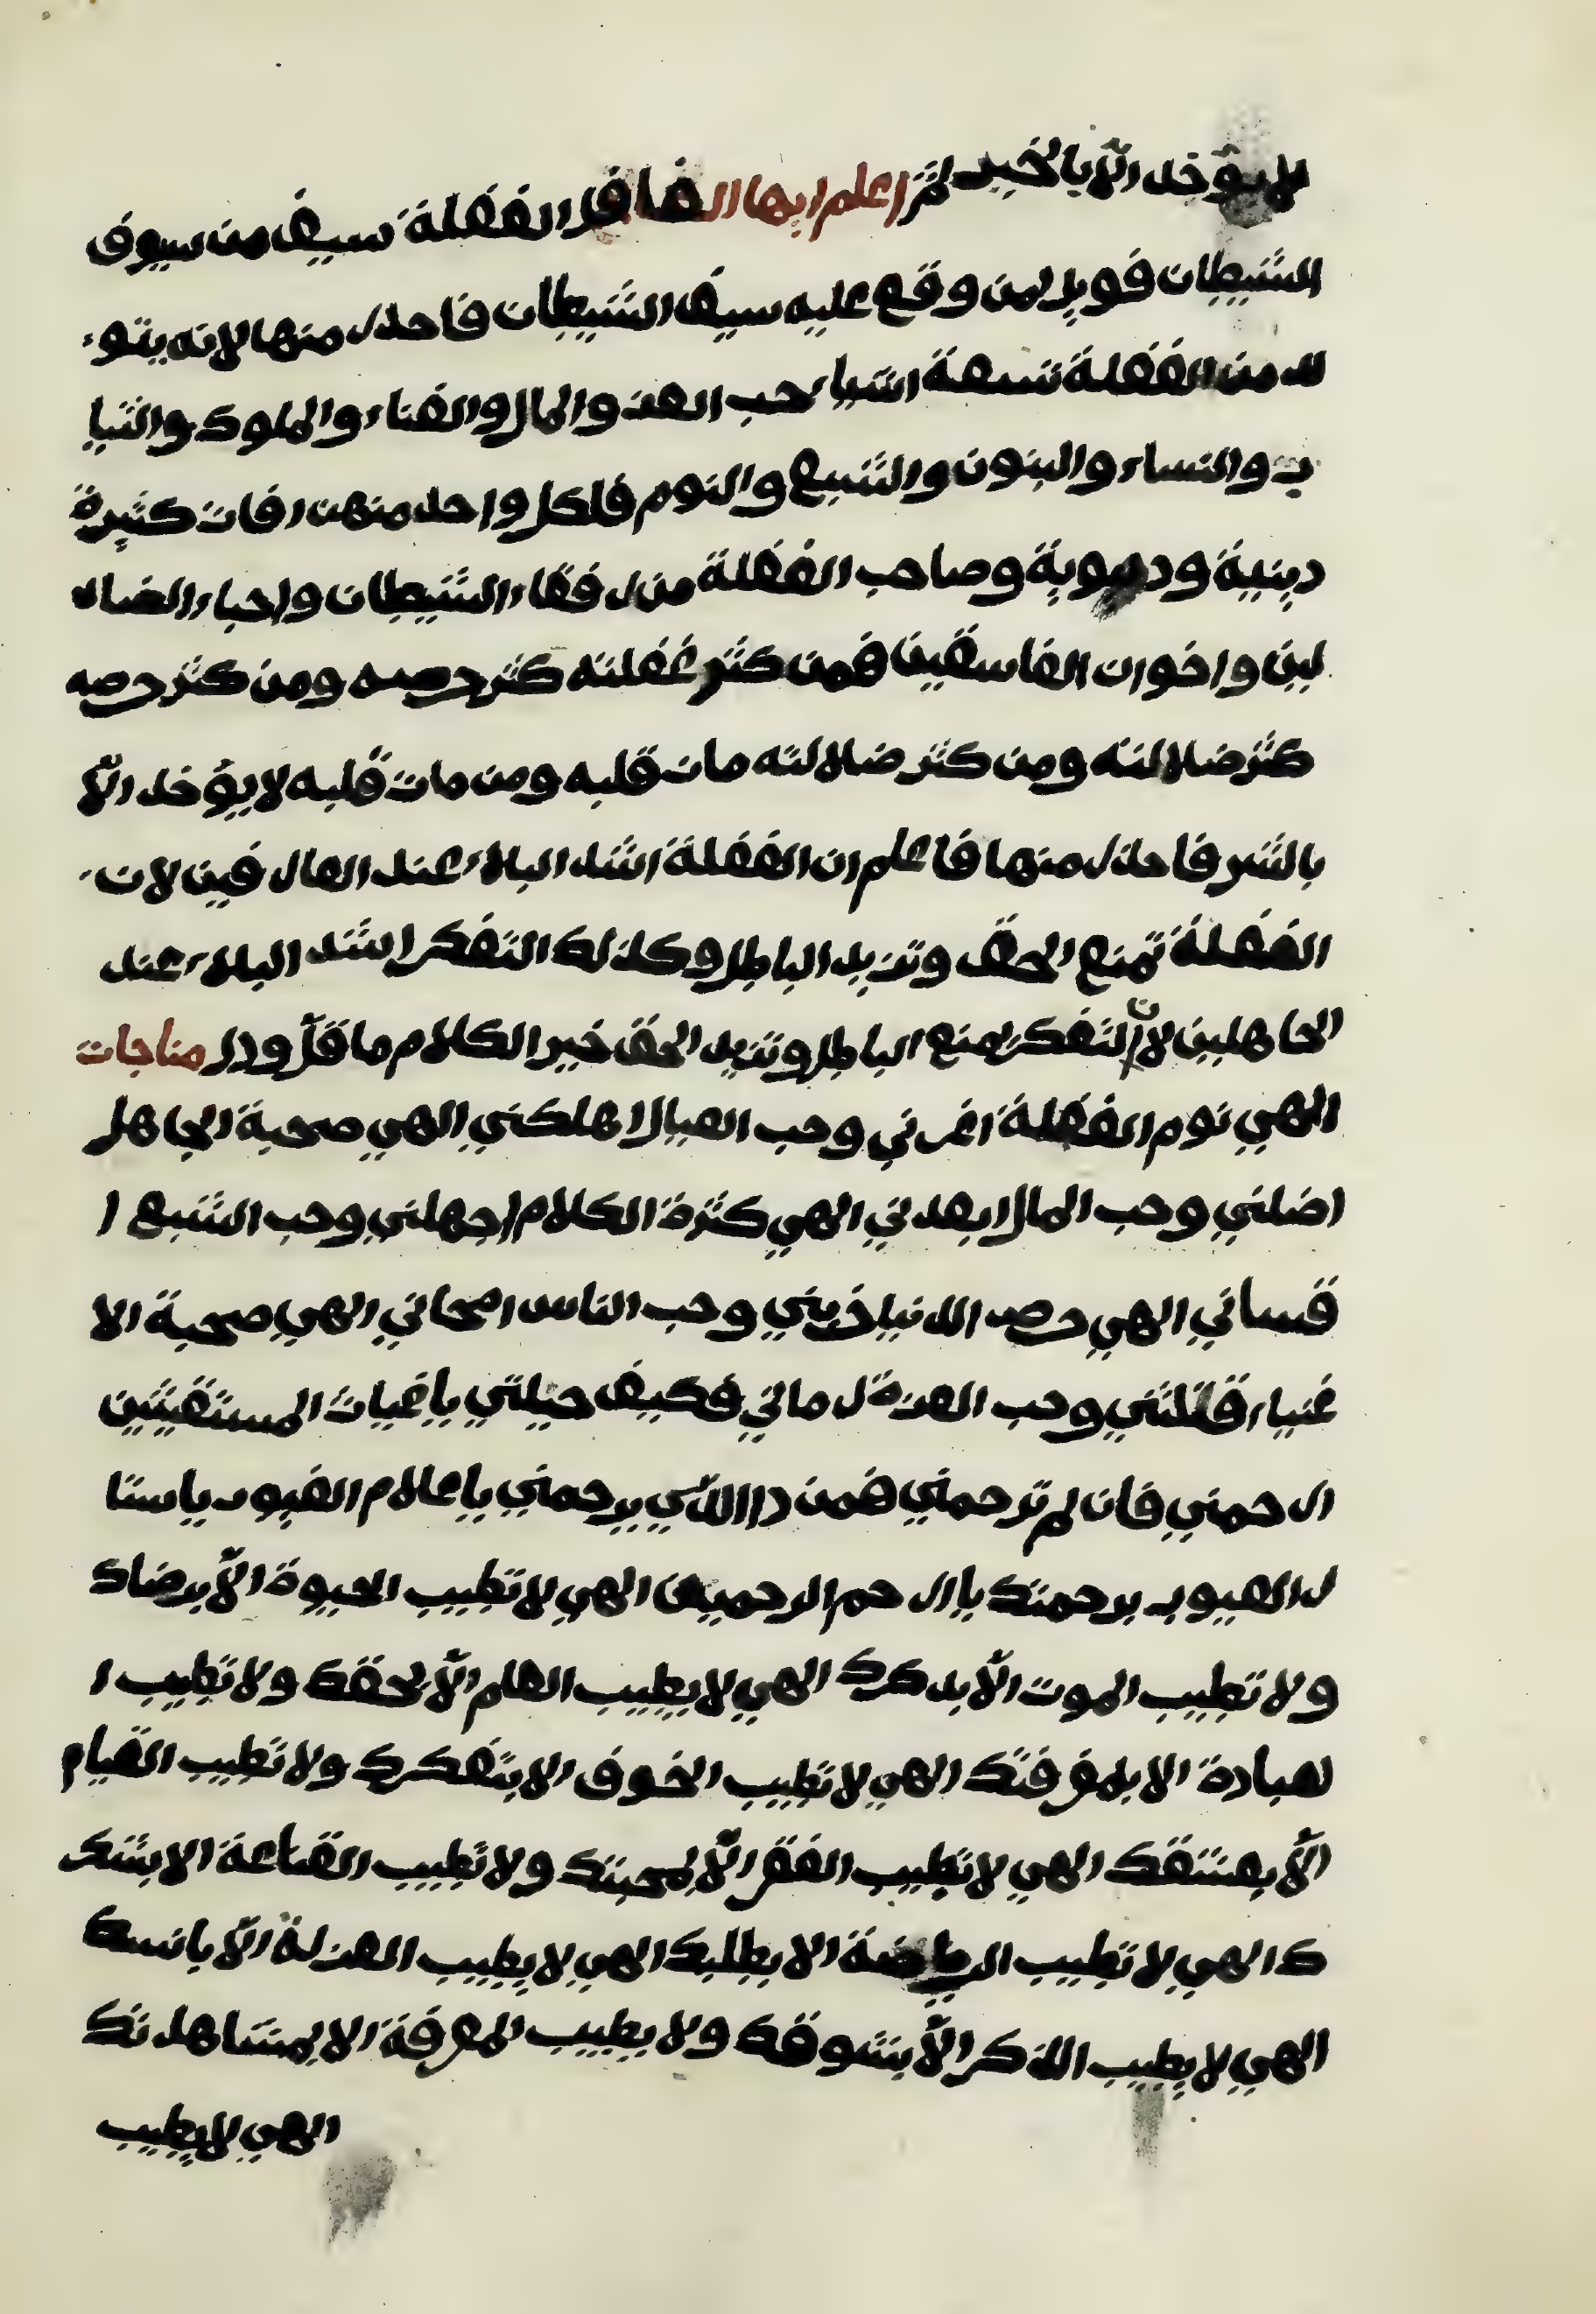 لا يؤخد الّا بالخير ثم اعلم ايها الغافل الغفلة سيف من سيوف
الشيطان فويل لمن وقع عليه سيف الشيطان فاحذر منها لانه يتو
لد من الغفلة تسعة اشياء حب العز والمال والغناء والملوك والثيا
ب والنساء والبنون والشبع والنوم فلكل واحد منهن افات كثيرة
دينية ودنيوية وصاحب الغفلة من رفقاء الشيطان واحباء الضا
لين واخوان الفاسقين فمن كثر غفلته كثر حرصه ومن كثر حرصه
كثر ضلالته ومن كثر ضلالته مات قلبه ومن مات قلبه لا يؤخد الّا
بالشر فاحذر منها فاعلم ان الغفلة اشد البلاء عند العارفين لان
الغفلة تمنع الحق وتزيد الباطل وكذلك التفكر اشد البلاء عند
الجاهلين لان التفكر يمنع الباطل وتزيد الحق خير الكلام ما قلّ ودل مناجات
الهي نوم الغفلة اغرني وحب العيال اهلكني الهي صحبة الجاهل
اضلني وحب المال ابعدني الهي كثرة الكلام اجهلني وحب الشبع ا
قساني الهي حرص الدنيا خربني وحب الناس امحاني الهي صحبة الا
غنياء قتلتني وحب العزة رماني فكيف حيلتي ياغياث المستغيثين
ارحمني فان لم ترحمني فمن ذا الّذي يرحمني ياعلام الغيوب ياستا
ر العيوب برحمتك ياارحم الرحمين الهي لا تطيب الحيوة الّا برضاك
ولا تطيب الموت الّا بدكرك الهي لا يطيب العلم الّا بحقك ولا تطيب ا
لعبادة الا بمعرفتك الهي لا تطيب الخوف الا بتفكرك ولا تطيب القيام
الّا بعشقك الهي لا تطيب الفقر الّا بمحبتك ولا تطيب القناعة الا بشكر
ك الهي لا تطيب الرياضة الا بطلبك الهي لا يطيب العزلة الّا بانسك
الهي لا يطيب الذكر الّا بشوقك ولا يطيب المعرفة الا بمشاهدتك
الهي لا يطيب